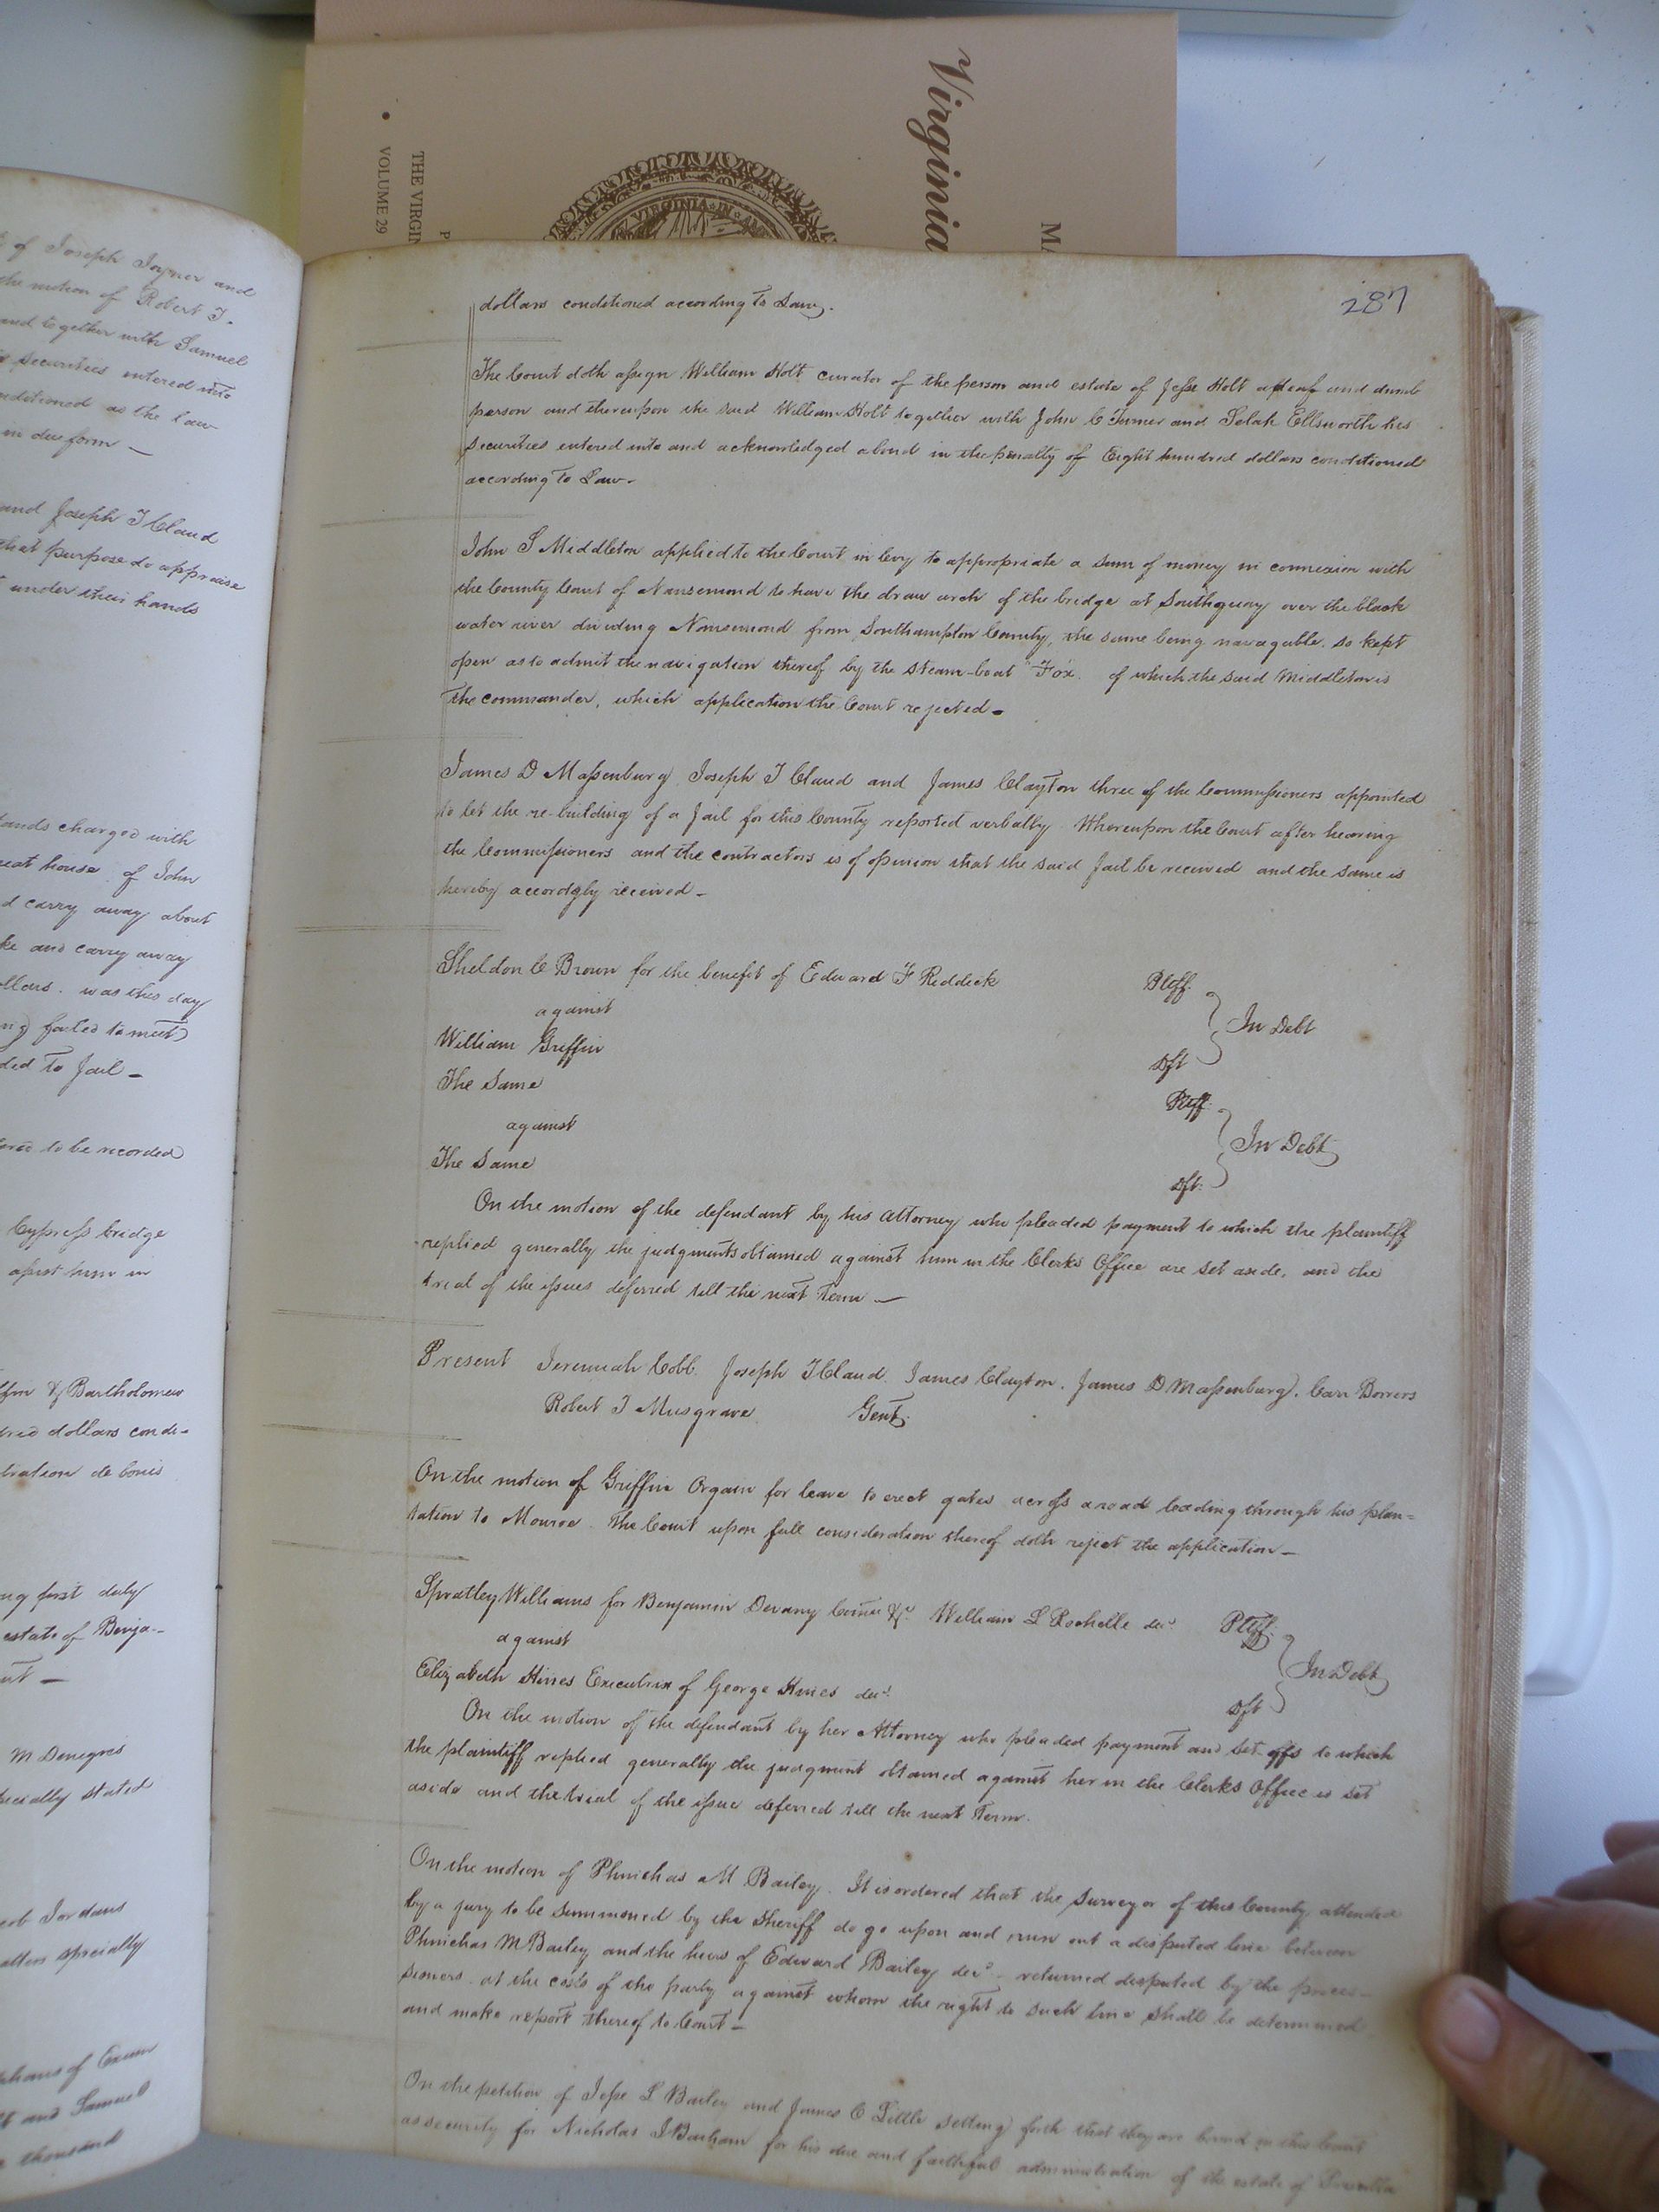 Virginia
MA
THE VIRGIN
VOLUME 29
P
VIRGINIA IN
of Joseph Joyner and
the motion of Robert T.
and together with Samuel
securities entered into
nditioned as the law
in due form —
and Joseph T Claud
that purpose do appraise
under their hands
tands charged with
eat house of John
d carry away about
ke and carry away
ollars. was this day
ng failed to meet
ded to Jail —
ered to be recorded
Cypress bridge
assist him in
ffin & Bartholomew
dred dollars condi-
tration de bonis
ng first duly
estate of Benja-
nt —
M Denegres
pecially stated
cob Jordans
atters specially
phans of Exum
tt and Samuel
thousand
287
dollars conditioned according to Law.
The Court doth assign William Holt curator of the person and estate of Jesse Holt a deaf and dumb
person and thereupon the said William Holt together with John C Turner and Selah Ellsworth his
securities entered into and acknowledged a bond in the penalty of Eight hundred dollars conditioned
according to Law.
John S Middleton applied to the Court in levy to appropriate a sum of money in connexion with
the County Court of Nansemond to have the draw arch of the bridge at Southquay over the black
water river dividing Nansemond from Southampton County, the same being navagable, so kept
open as to admit the navigation thereof by the steam-boat "Fox. of which the said Middleton is
the commander, which application the Court rejected —
James D Massenburg, Joseph T Claud and James Clayton three of the Commissioners appointed
to let the re-building of a Jail for this County reported verbally. Whereupon the Court after hearing
the Commissioners and the contractors is of opinion that the said Jail be received and the same is
hereby accordgly received —
Sheldon C Brown for the benefit of Edward F Riddick Pltff.
against
In Debt
William Griffin Dft
The Same Pltff.
against
In Debt
The Same Dft.
On the motion of the defendant by his Attorney who pleaded payment to which the plaintiff
replied generally the judgments obtained against him in the Clerks Office are set aside, and the
trial of the issues deferred till the next Term —
Present Jeremiah Cobb. Joseph T Claud. James Clayton. James D Massenburg. Carr Bowers
Robert T Musgrave Gent.
On the motion of Griffin Orgain for leave to erect gates across a road leading through his plan=
tation to Monroe. The Court upon full consideration thereof doth reject the application —
Spratley Williams for Benjamin Devany Comee &c. William L Rochelle decd. Pltff.
against
In Debt
Elizabeth Hines Executrix of George Hines decd. Dft
On the motion of the defendant by her Attorney who pleaded payment and set offs to which
the plaintiff replied generally the judgment obtained against her in the Clerks Office is set
aside and the trial of the issue deferred till the next Term.
On the motion of Phinehas M Bailey. It is ordered that the Surveyor of this County attended
by a jury to be summoned by the Sheriff do go upon and run out a disputed line between
Phinehas M Bailey and the heirs of Edward Bailey decd. returned disputed by the proces-
sioners. at the costs of the party against whom the right to such line shall be determined,
and make report thereof to Court —
On the petition of Jesse L Bailey and James C Little setting forth that they are bound in this Court
as security for Nicholas J Barham for his due and faithful administration of the estate of Priscilla